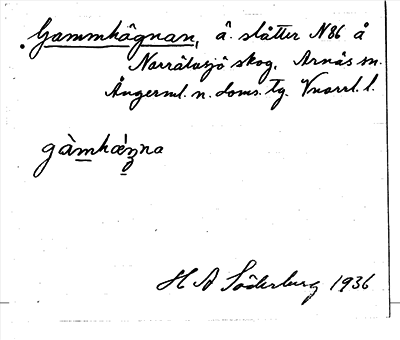 Gammhägnan, å. slåtter N86 å
Norrälasjö skog. Arnäs sn.
Ångerml. n. doms. tg. Vnorrl. l.
gàmhæ̀ɳna
H A Söderburg 1936